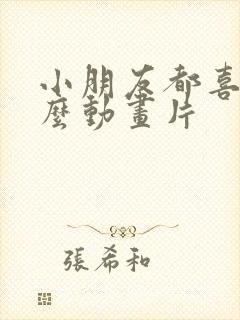 小朋友都喜
麼動畫片
張希和